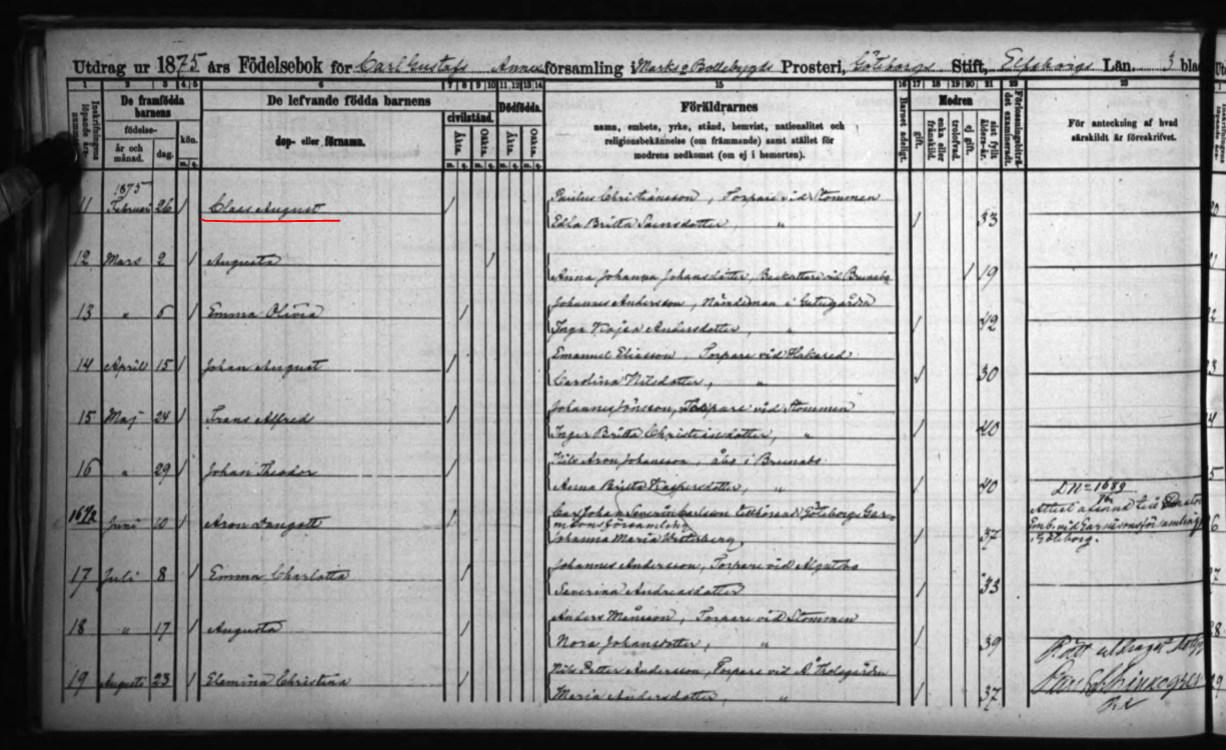 Utdrag ur 1875 års Födelsebok för Carl Gustafs Annex församling i Marks o Bollebygds Prosteri, Göteborgs Stift, Elfsborgs Län. 3 blad
1 2 3 4 5 6 7 8 9 10 11 12 13 14 15 16 17 18 19 20 21 22 23
De framfödda barnens
födelse-
år och månad.
dag.
kön.
m. q.
De lefvande födda barnens
dop- eller förnamn.
civilstånd.
Äkta.
Oäkta.
Dödfödda.
Äkta.
Oäkta.
Föräldrarnes
namn, embete, yrke, stånd, hemvist, nationalitet och
religionsbekännelse (om främmande) samt stället för
modrens nedkomst (om ej i hemorten).
Barnet adeligt.
Modren
gift.
enka eller frånskild.
trolofvad.
ej gift.
För anteckning af hvad
särskildt är föreskrifvet.
1875
11 Februari 26 Claes August Paulus Christiansson, Torpare vid Stommen
Edla Britta Svensdotter, " 33
12 Mars 2 Augusta
Anna Johanna Johansdotter, 19
13 " 5 Emma Olivia Johannes Andersson, Nämndeman i
Inga Kajsa Andersdotter, " 42
14 April 15 Johan August Emanuel Eliasson, Torpare vid Hakared
Carolina Nilsdotter, " 30
15 Maj 24 Frans Alfred Johannes Jönsson, Torpare vid Stommen
Inger Britta Christiansdotter, " 40
16 " 29 Johan Theodor Nils Aron Johansson, åbo i Brunabo
Anna Britta Kaspersdotter, " 40
16½ Juni 10 Aron Carl Johan Severin Carlson tillhörand Göteborgs Gar-
nisons församling
Johanna Maria Westerberg, 37
D Nr 1689
Göteborg.
17 Juli 8 Emma Charlotta Johannes Andersson, Torpare vid Algutsbo
Severina Andreasdotter 33
18 " 17 Augusta Anders Månsson, Torpare vid Stommen
Nora Johansdotter, " 39
19 Augusti 23 Elemina Christina Nils Petter Andersson, Torpare vid
Maria Andersdotter, " 37